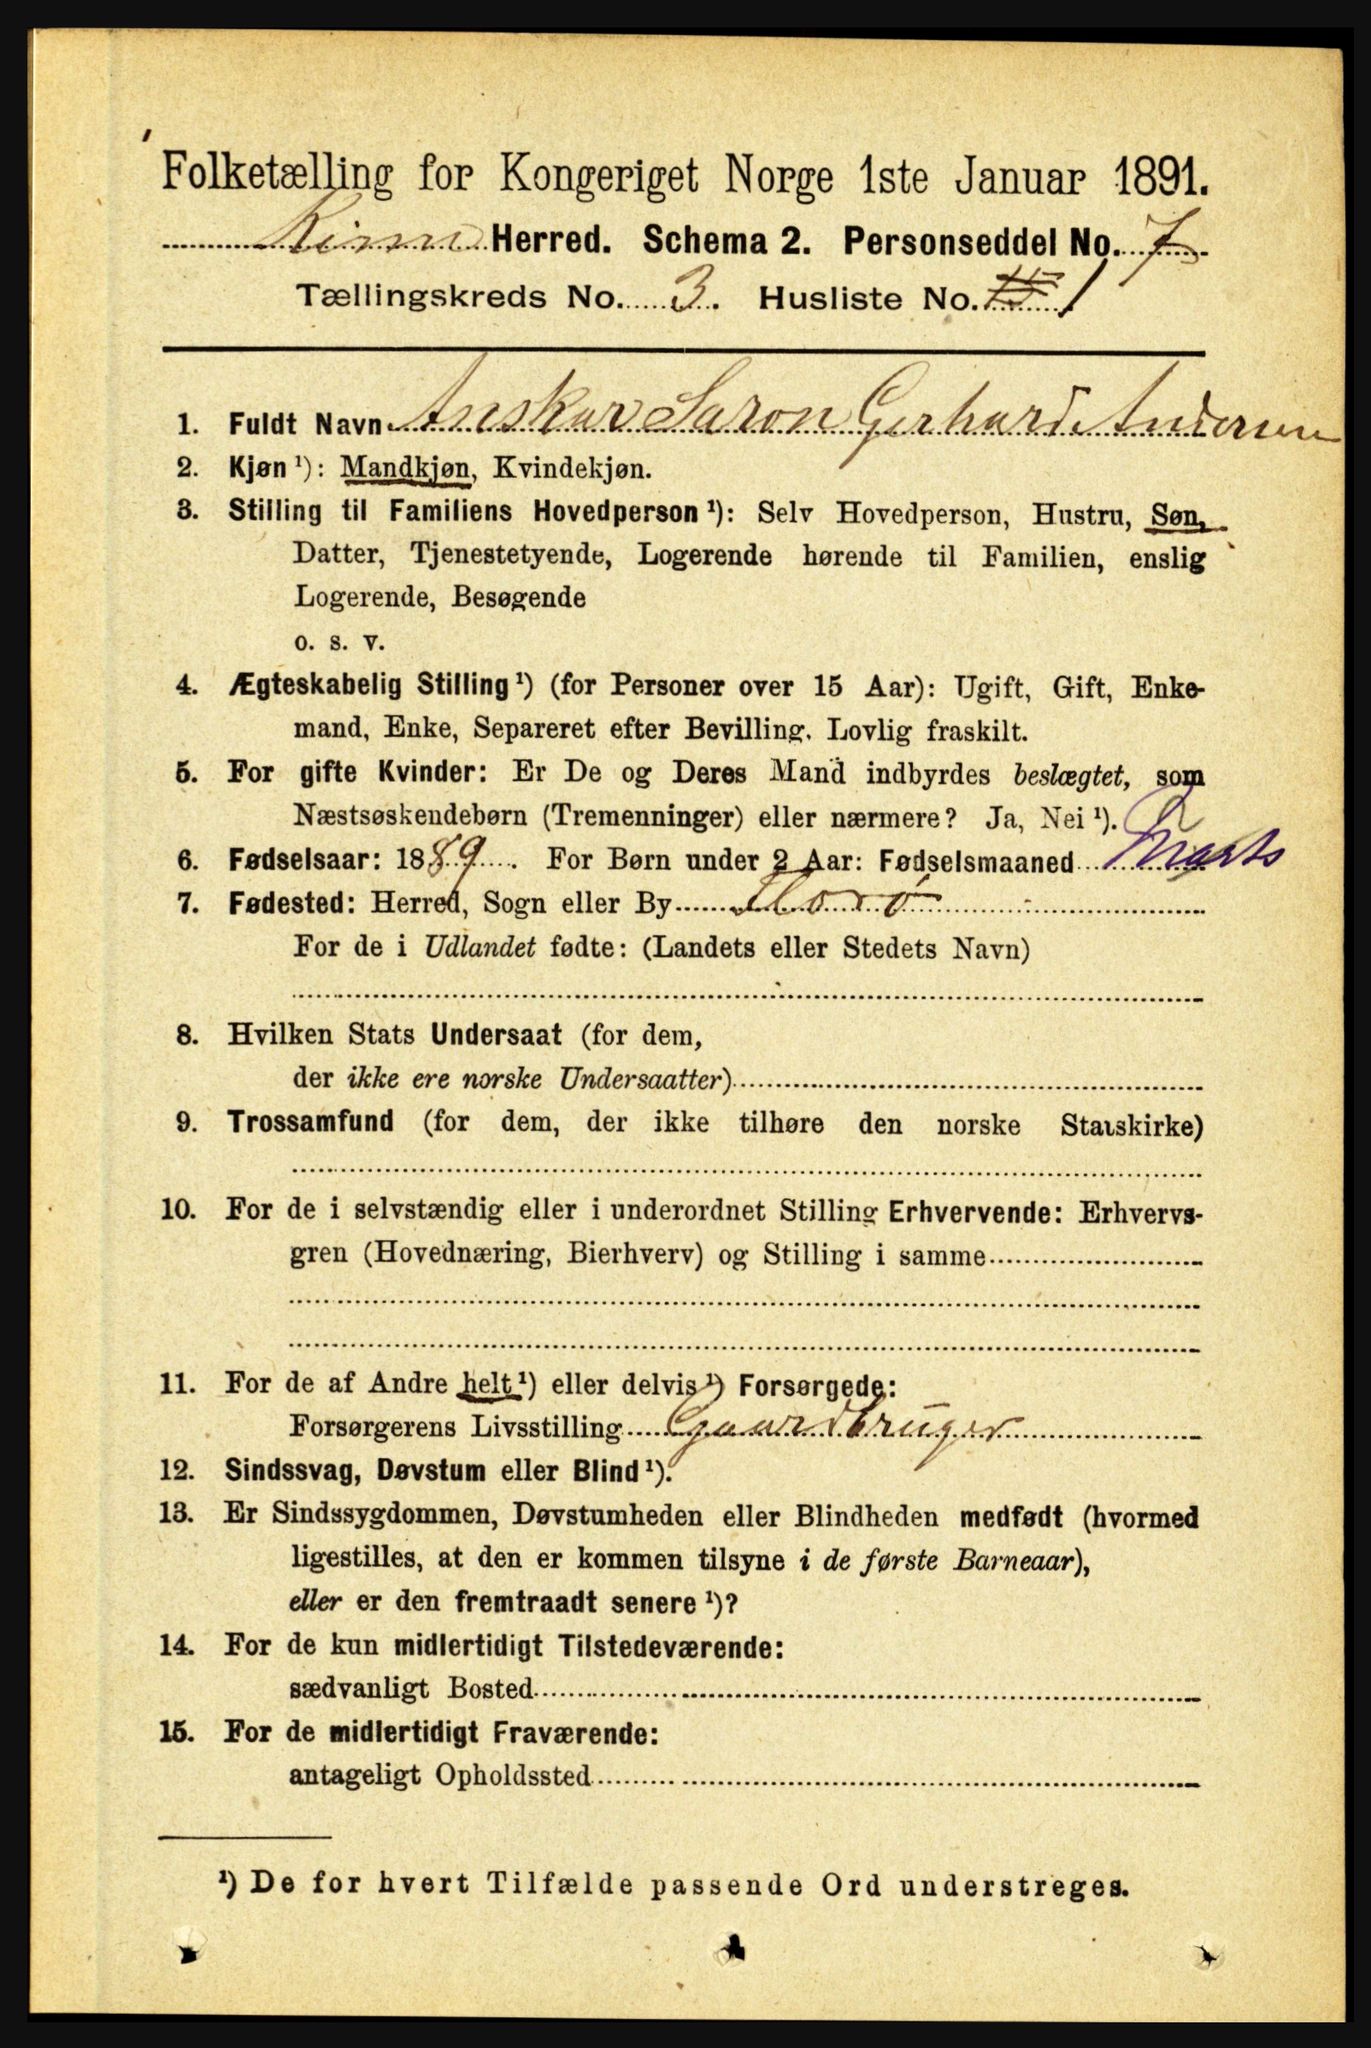 Folketælling for Kongeriget Norge 1ste Januar 1891.
Kinn Herred. Schema 2. Personseddel No. 7
Tællingskreds No. 3. Husliste No. 1
1. Fuldt Navn Anskar Saron Gerhard Andersen
2. Kjøn ¹): Mandkjøn, Kvindekjøn.
3. Stilling til Familiens Hovedperson ¹): Selv Hovedperson, Hustru, Søn,
Datter, Tjenestetyende, Logerende hørende til Familien, enslig
Logerende, Besøgende
o. s. v.
4. Ægteskabelig Stilling ¹) (for Personer over 15 Aar): Ugift, Gift, Enke-
mand, Enke, Separeret efter Bevilling. Lovlig fraskilt.
5. For gifte Kvinder: Er De og Deres Mand indbyrdes beslægtet, som
Næstsøskendebørn (Tremenninger) eller nærmere? Ja, Nei ¹).
6. Fødselsaar: 1889. For Børn under 2 Aar: Fødselsmaaned Marts
7. Fødested: Herred, Sogn eller By Florø
For de i Udlandet fødte: (Landets eller Stedets Navn)
8. Hvilken Stats Undersaat (for dem,
der ikke ere norske Undersaatter)
9. Trossamfund (for dem, der ikke tilhøre den norske Statskirke)
10. For de i selvstændig eller i underordnet Stilling Erhvervende: Erhvervs-
gren (Hovednæring, Bierhverv) og Stilling i samme
11. For de af Andre helt ¹) eller delvis ¹) Forsørgede:
Forsørgerens Livsstilling Gaardbruger
12. Sindssvag, Døvstum eller Blind ¹).
13. Er Sindssygdommen, Døvstumheden eller Blindheden medfødt (hvormed
ligestilles, at den er kommen tilsyne i de første Barneaar),
eller er den fremtraadt senere ¹)?
14. For de kun midlertidigt Tilstedeværende:
sædvanligt Bosted
15. For de midlertidigt Fraværende:
antageligt Opholdssted
¹) De for hvert Tilfælde passende Ord understreges.